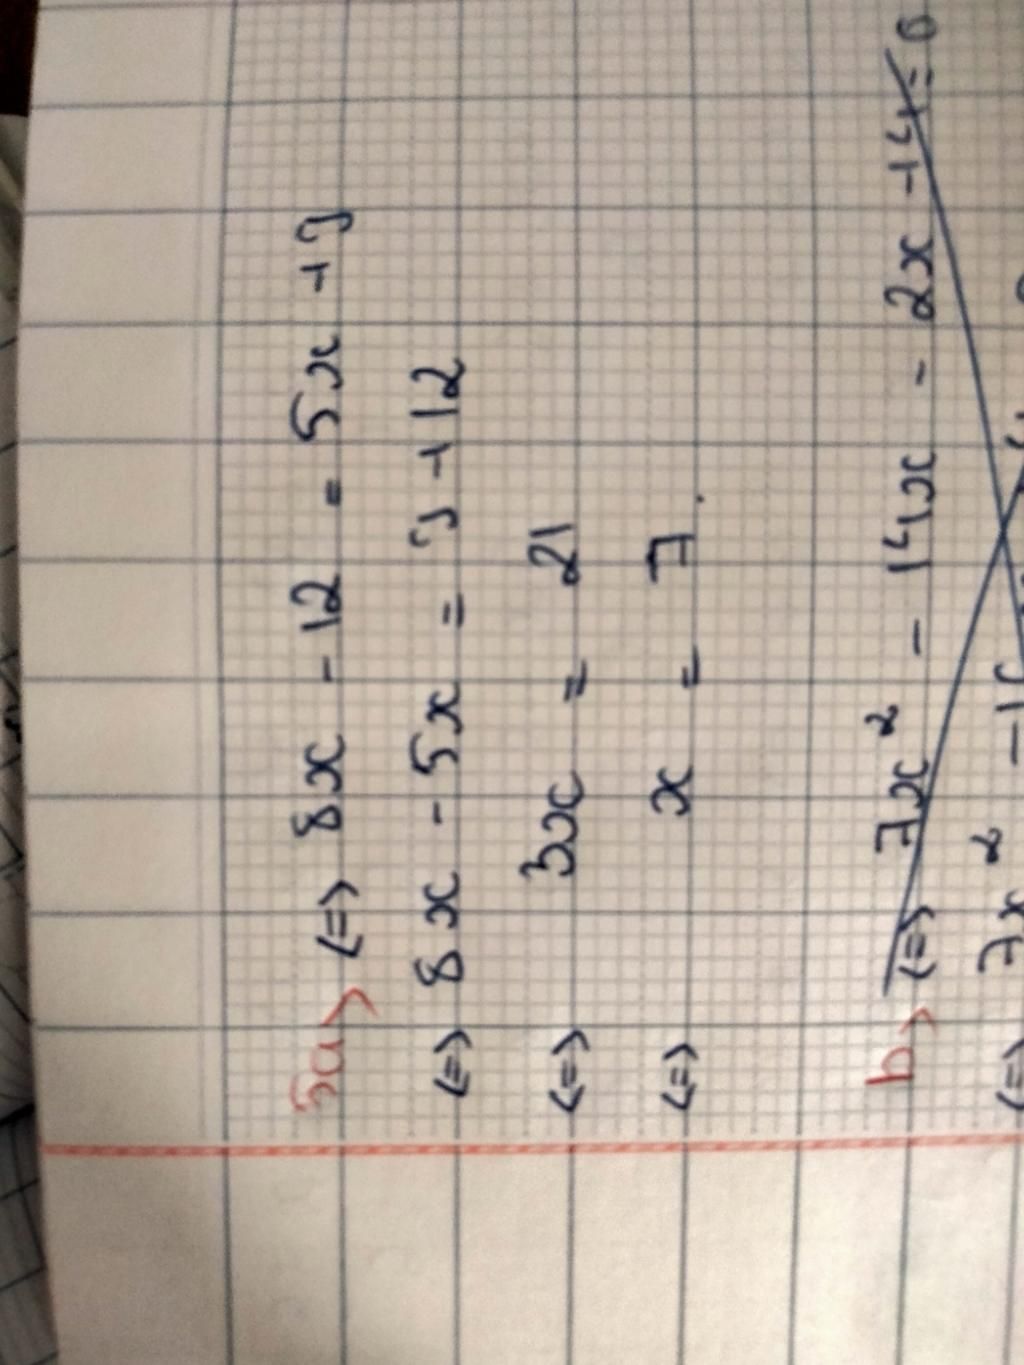 5a> <=> 8x - 12 = 5x + 9
<=> 8x - 5x = 9 + 12
<=> 3x = 21
<=> x = 7.
b> <=> 7x² - 14x - 2x + 4 = 0
<=> 7x²